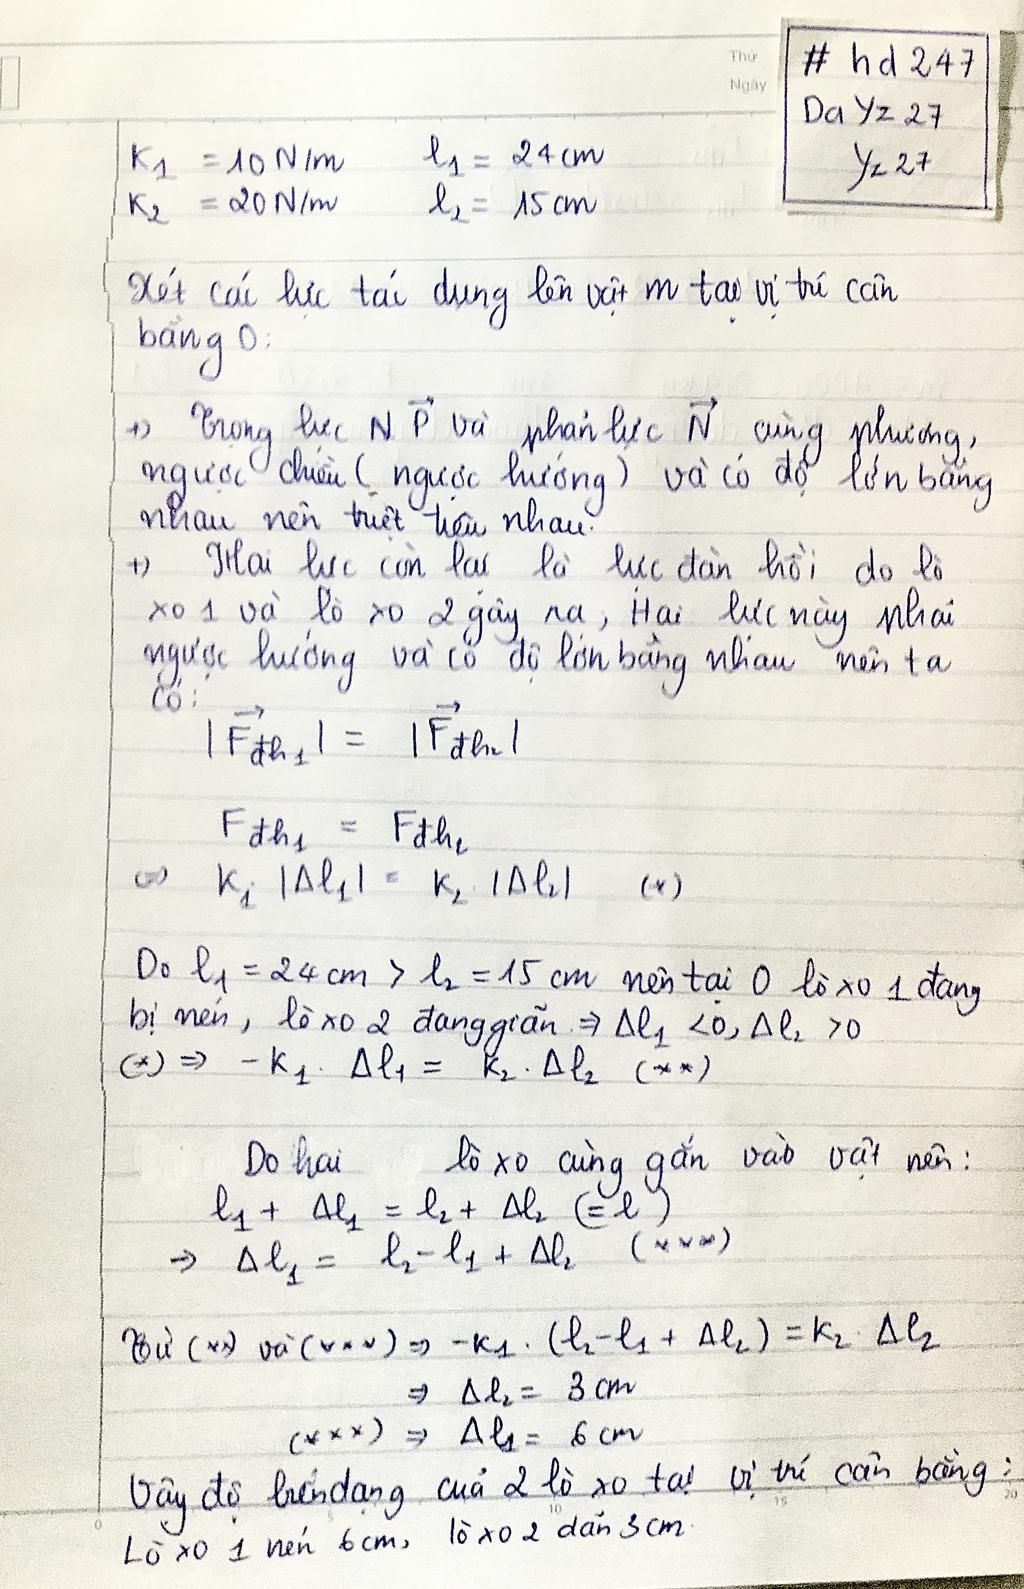 Thứ
Ngày
# hd 247
Da Yz 27
Yz 27
K₁ = 10 N/m l₁ = 24 cm
K₂ = 20 N/m l₂ = 15 cm
Xét cái lực tái dụng lên vật m tại vị trí cân
bằng O:
+) Trọng lực N P⃗ và phản lực N⃗ cùng phương,
ngược chiều ( ngược hướng ) và có độ lớn bằng
nhau nên triệt tiêu nhau.
+) Hai lực còn lại là lực đàn hồi do lò
xo 1 và lò xo 2 gây ra, Hai lực này phải
ngược hướng và có độ lớn bằng nhau nên ta
có:
|F⃗đh₁| = |F⃗đh₂|
Fđh₁ = Fđh₂
⇔ K₁. |Δl₁| = K₂. |Δl₂| (*)
Do l₁ = 24 cm > l₂ = 15 cm nên tại O lò xo 1 đang
bị nén, lò xo 2 đang giãn ⇒ Δl₁ <0, Δl₂ >0
(*) ⇒ -K₁. Δl₁ = K₂. Δl₂ (**)
Do hai lò xo cùng gắn vào vật nên:
l₁ + Δl₁ = l₂ + Δl₂ (= l)
⇒ Δl₁ = l₂ - l₁ + Δl₂ (***)
Từ (**) và (***) ⇒ -K₁. (l₂ - l₁ + Δl₂) = K₂. Δl₂
⇒ Δl₂ = 3 cm
(***) ⇒ Δl₁ = 6 cm
Vậy độ biến dạng của 2 lò xo tại vị trí cân bằng:
0 5 10 15 20
Lò xo 1 nén 6cm, lò xo 2 dãn 3cm.